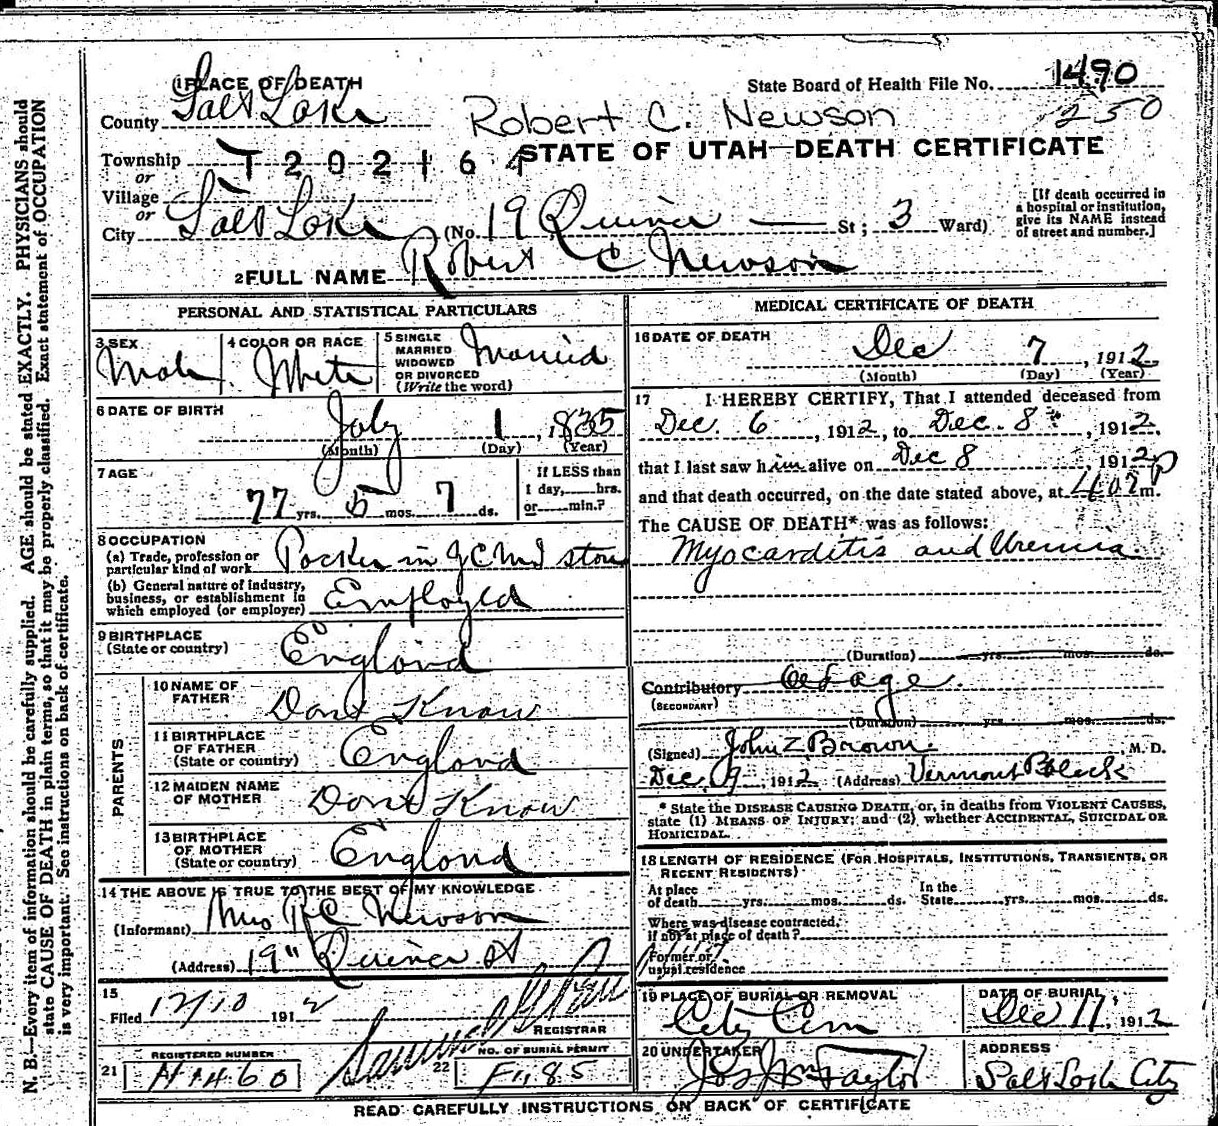 1 PLACE OF DEATH
State Board of Health File No. 1490
250
County Salt Lake
Robert C. Newson
Township
T 2 0 2 1 6 4
STATE OF UTAH—DEATH CERTIFICATE
or
Village
or
City Salt Lake (No. 19 Quince St; 3 Ward)
[If death occurred in a hospital or institution, give its NAME instead of street and number.]
2 FULL NAME Robert C Newson
PERSONAL AND STATISTICAL PARTICULARS
3 SEX Male
4 COLOR OR RACE White
5 SINGLE MARRIED WIDOWED OR DIVORCED (Write the word) Married
6 DATE OF BIRTH July 1, 1835
(Month) (Day) (Year)
7 AGE 77 yrs. 5 mos. 7 ds.
If LESS than 1 day, hrs. or min.?
8 OCCUPATION
(a) Trade, profession or particular kind of work Packer in ZCMI store
(b) General nature of industry, business, or establishment in which employed (or employer) Employed
9 BIRTHPLACE (State or country) England
PARENTS
10 NAME OF FATHER Dont Know
11 BIRTHPLACE OF FATHER (State or country) England
12 MAIDEN NAME OF MOTHER Dont Know
13 BIRTHPLACE OF MOTHER (State or country) England
14 THE ABOVE IS TRUE TO THE BEST OF MY KNOWLEDGE
(Informant) Mrs R C Newson
(Address) 19" Quince St
15
Filed 12/10 1912
REGISTRAR
REGISTERED NUMBER
21 H1460
NO. OF BURIAL PERMIT
22 F1185
MEDICAL CERTIFICATE OF DEATH
16 DATE OF DEATH Dec 7, 1912
(Month) (Day) (Year)
17 I HEREBY CERTIFY, That I attended deceased from
Dec. 6, 1912, to Dec. 8, 1912,
that I last saw him alive on Dec 8 1912
and that death occurred, on the date stated above, at m.
The CAUSE OF DEATH* was as follows:
Myocarditis and Uremia
(Duration) yrs. mos. ds.
Contributory Old age.
(SECONDARY)
(Duration) yrs. mos. ds.
(Signed) John Z Brown M. D.
Dec 9 1912 (Address) Vermont Block
* State the DISEASE CAUSING DEATH, or, in deaths from VIOLENT CAUSES, state (1) MEANS OF INJURY; and (2) whether ACCIDENTAL, SUICIDAL OR HOMICIDAL.
18 LENGTH OF RESIDENCE (FOR HOSPITALS, INSTITUTIONS, TRANSIENTS, OR RECENT RESIDENTS)
At place of death yrs. mos. ds. In the State yrs. mos. ds.
Where was disease contracted, if not at place of death?
Former or usual residence
19 PLACE OF BURIAL OR REMOVAL City Cem
DATE OF BURIAL Dec 11, 1912
20 UNDERTAKER Jos Wm Taylor
ADDRESS Salt Lake City
READ CAREFULLY INSTRUCTIONS ON BACK OF CERTIFICATE
N. B.—Every item of information should be carefully supplied. AGE should be stated EXACTLY. PHYSICIANS should
state CAUSE OF DEATH in plain terms, so that it may be properly classified. Exact statement of OCCUPATION
is very important. See instructions on back of certificate.